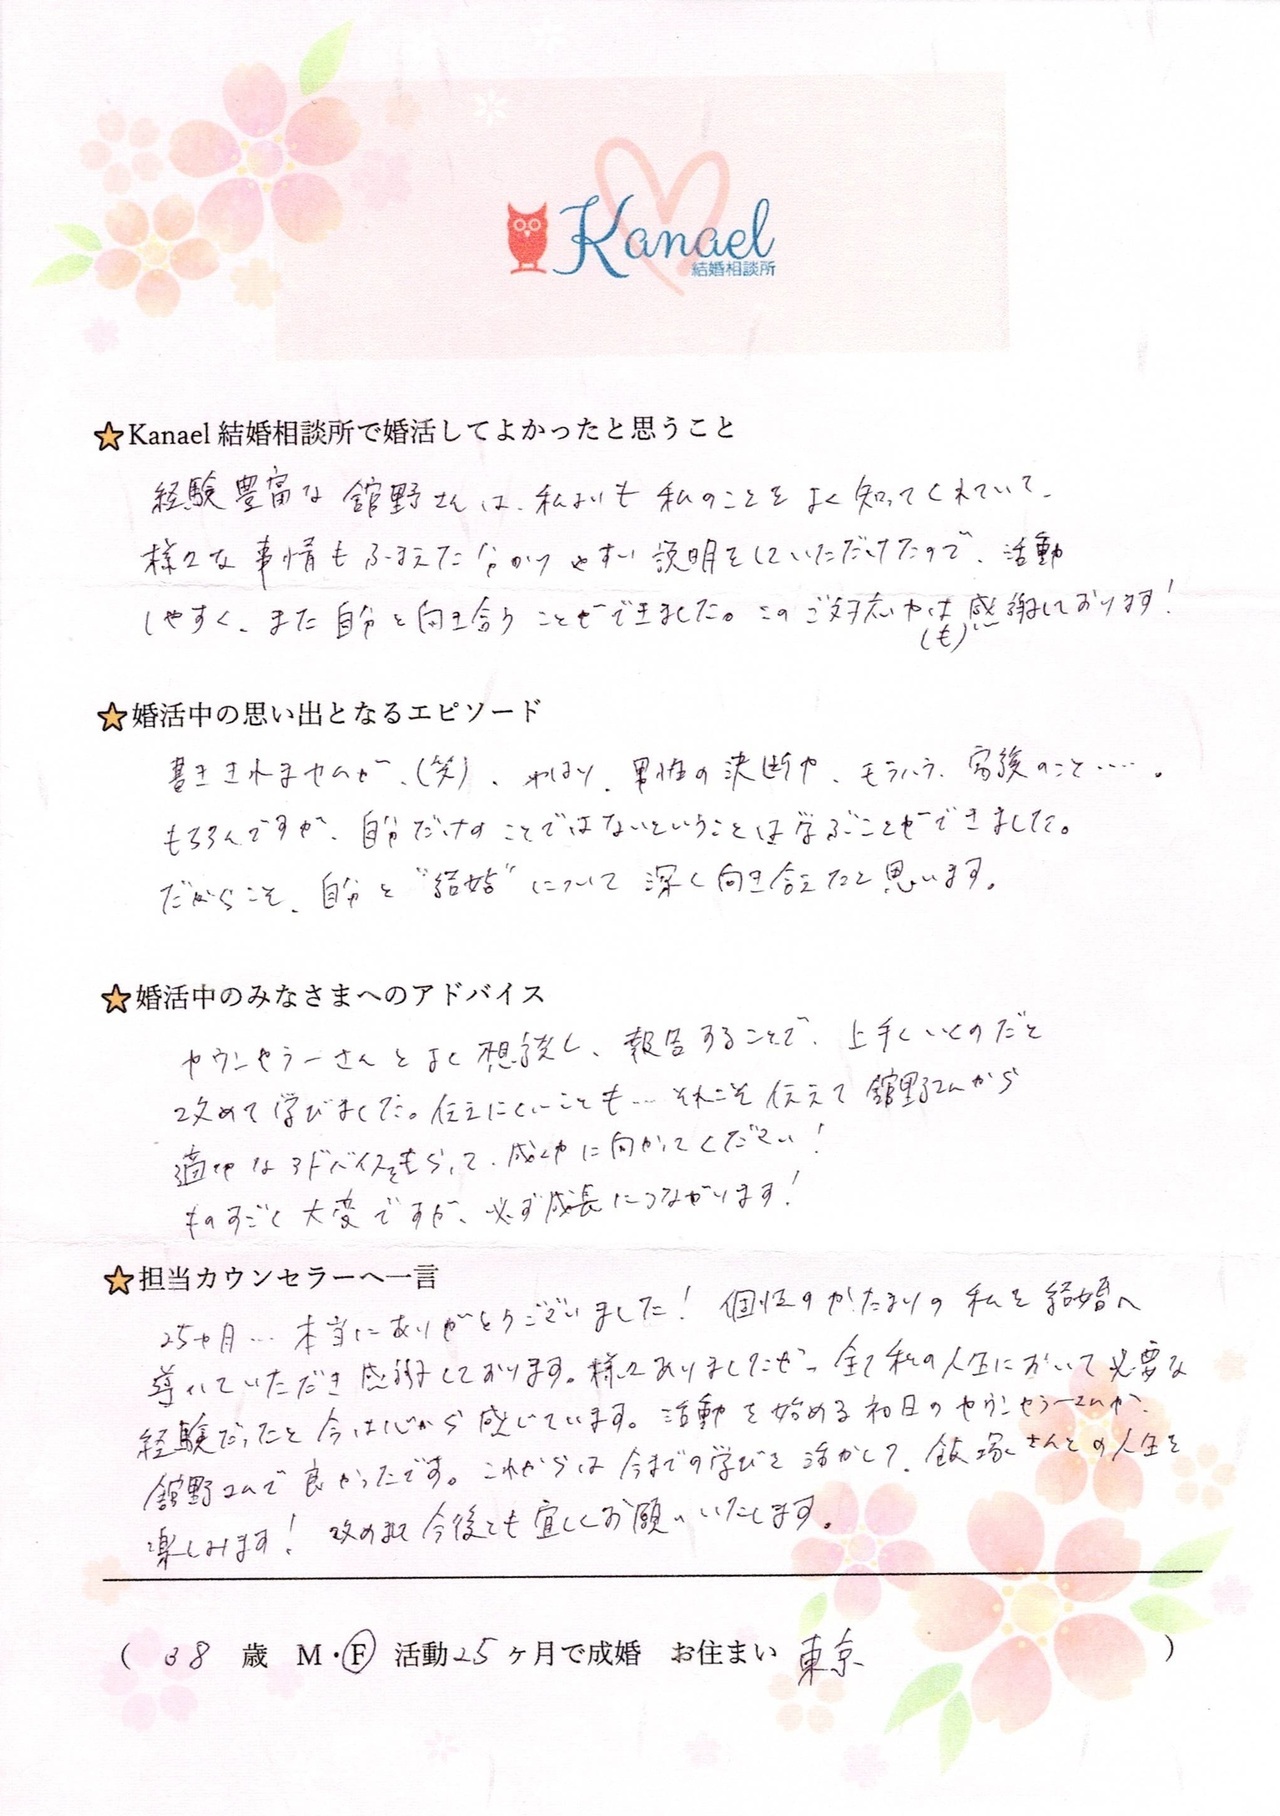 Kanael
結婚相談所
Kanael 結婚相談所で婚活してよかったと思うこと
経験豊富な舘野さんは、私よりも私のことをよく知ってくれていて、
様々な事情もふまえた分かりやすい説明をしていただけたので、活動
しやすく、また自分と向き合うことができました。このご対応やは感謝しております!
(も)
婚活中の思い出となるエピソード
書ききれませんが、(笑)、やはり、男性の決断や、モラハラ、家族のこと……。
もちろんですが、自分だけのことではないということは学ぶことができました。
だからこそ、自分と"結婚"について深く向き合えたと思います。
婚活中のみなさまへのアドバイス
カウンセラーさんとよく相談し、報告することで、上手くいくのだと
改めて学びました。伝えにくいことも…それこそ伝えて舘野さんから
適切なアドバイスをもらって、成婚に向かってください!
ものすごく大変ですが、必ず成長につながります!
担当カウンセラーへ一言
25ヶ月…本当にありがとうございました!個性のかたまりの私を結婚へ
導いていただき感謝しております。様々ありましたが、全て私の人生において必要な
経験だったと今は心から感じています。活動を始める初日のカウンセラーさんが、
舘野さんで良かったです。これからは今までの学びを活かして、飯塚さんとの人生を
楽しみます!改めまして今後とも宜しくお願いいたします。
( 38 歳 M・F 活動25ヶ月で成婚 お住まい 東京 )